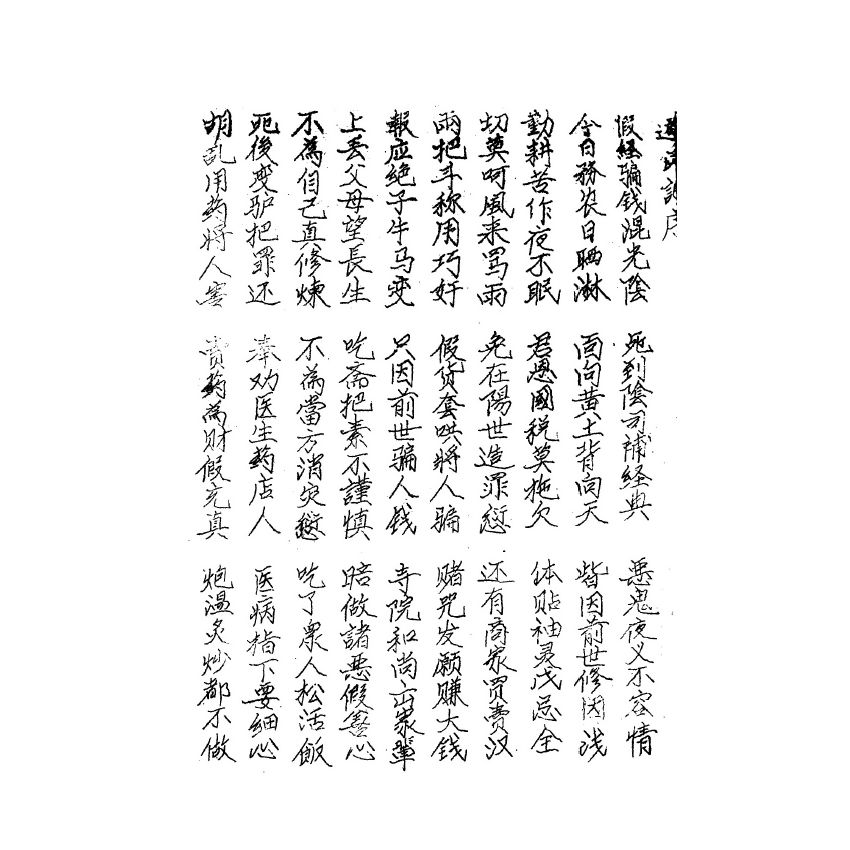 假經騙錢混光陰 死到陰司補經典 惡鬼夜叉不容情
今日務农日晒淋 面向黄土背向天 皆因前世修因浅
勤耕苦作夜不眠 君恩國税莫拖欠 体贴袖灵戊忌全
切莫呵風来罵雨 免在陽世造罪愆 还有商家買賣汉
兩把斗称用巧奸 假货套哄將人骗 赌咒发願赚大錢
報应绝子牛马变 只因前世骗人錢 寺院和尚出家輩
上丢父母望長生 吃斋把素不謹慎 暗做諸惡假善心
不為自己真修煉 不為當方消灾愆 吃了眾人松活飯
死後变驴把罪还 奉劝医生药店人 医病指下要細心
胡乱用药將人害 賣药為财假充真 炮温炙炒都不做